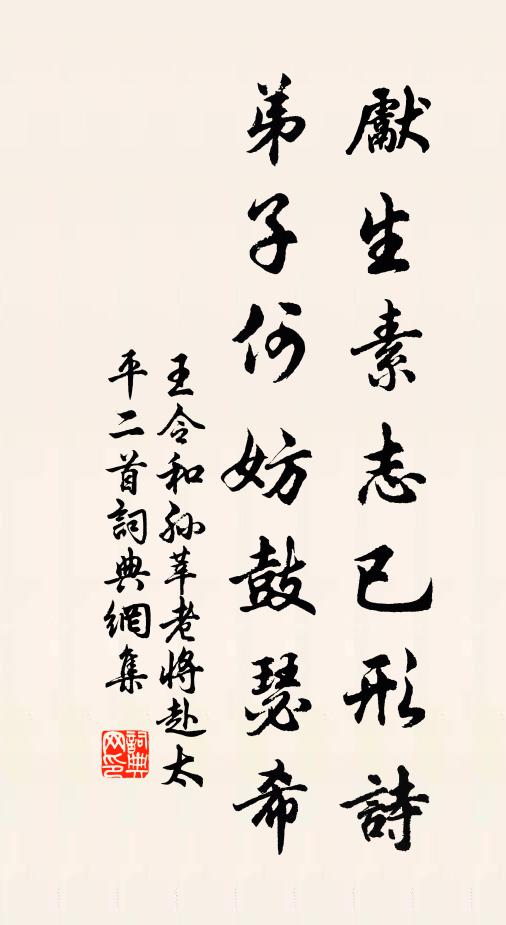 獻生素志已形詩
弟子何妨鼓瑟希
王令和孫莘老將赴太
平二首詞典網集
詞典
网印